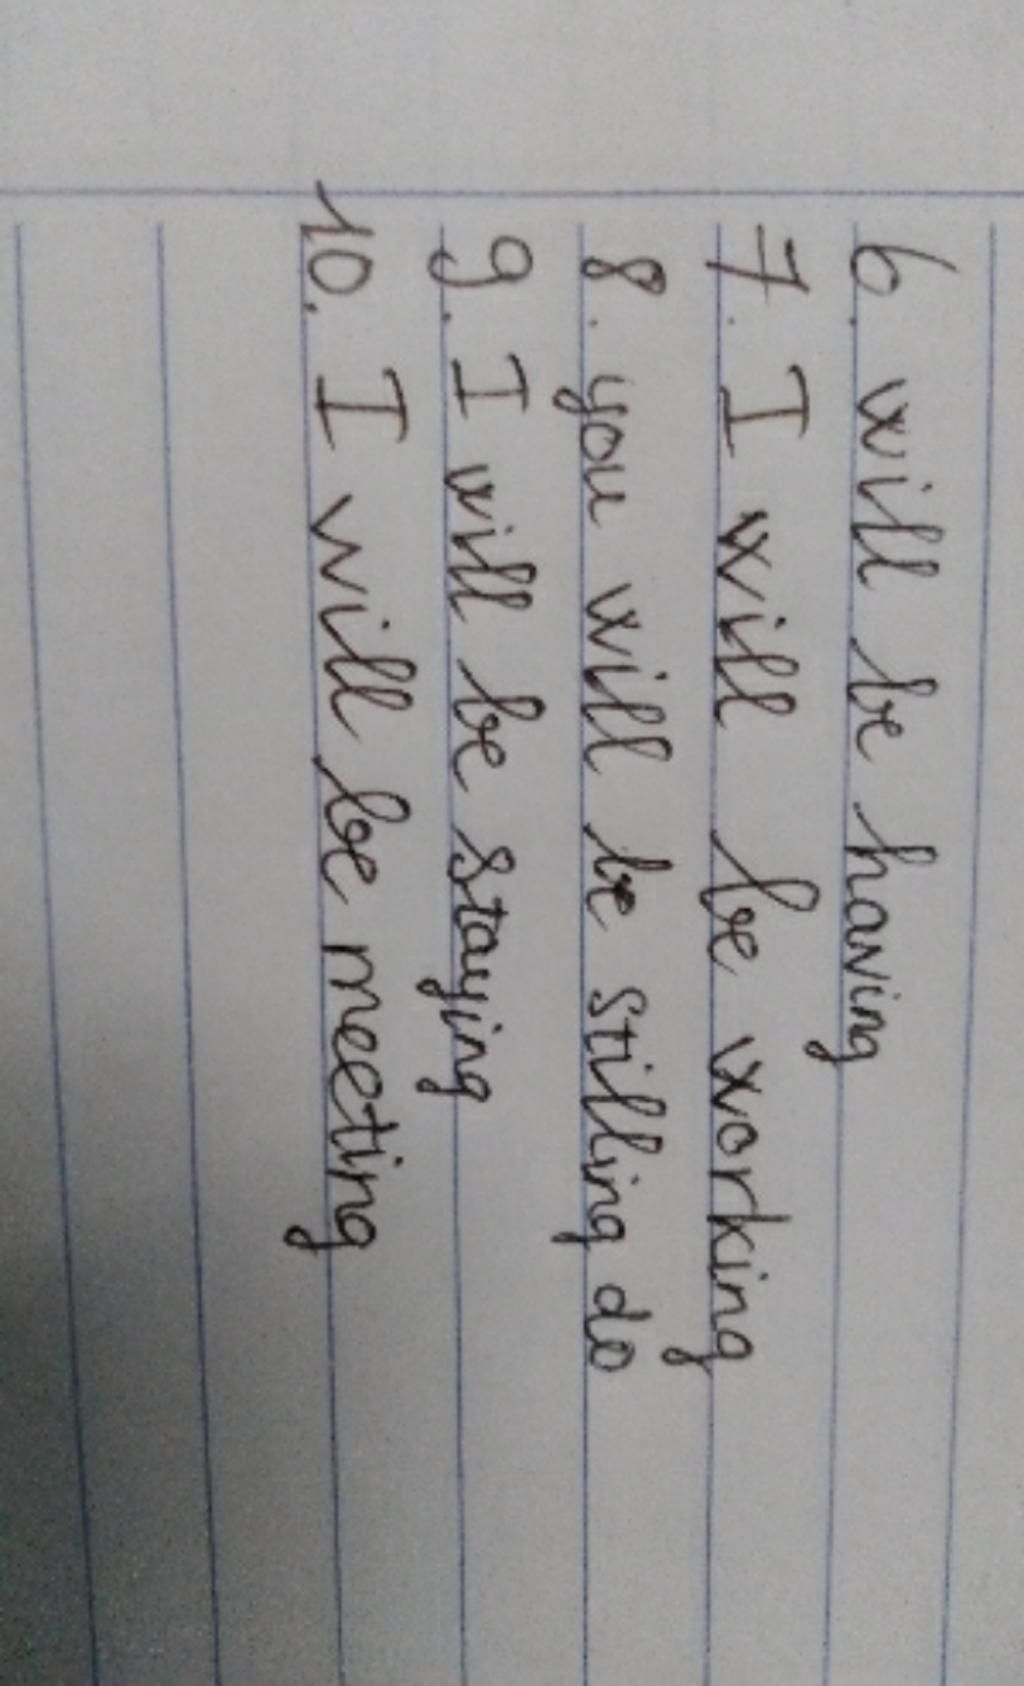 6. will be having
7. I will be working
8. you will be stilling do
9. I will be staying
10. I will be meeting